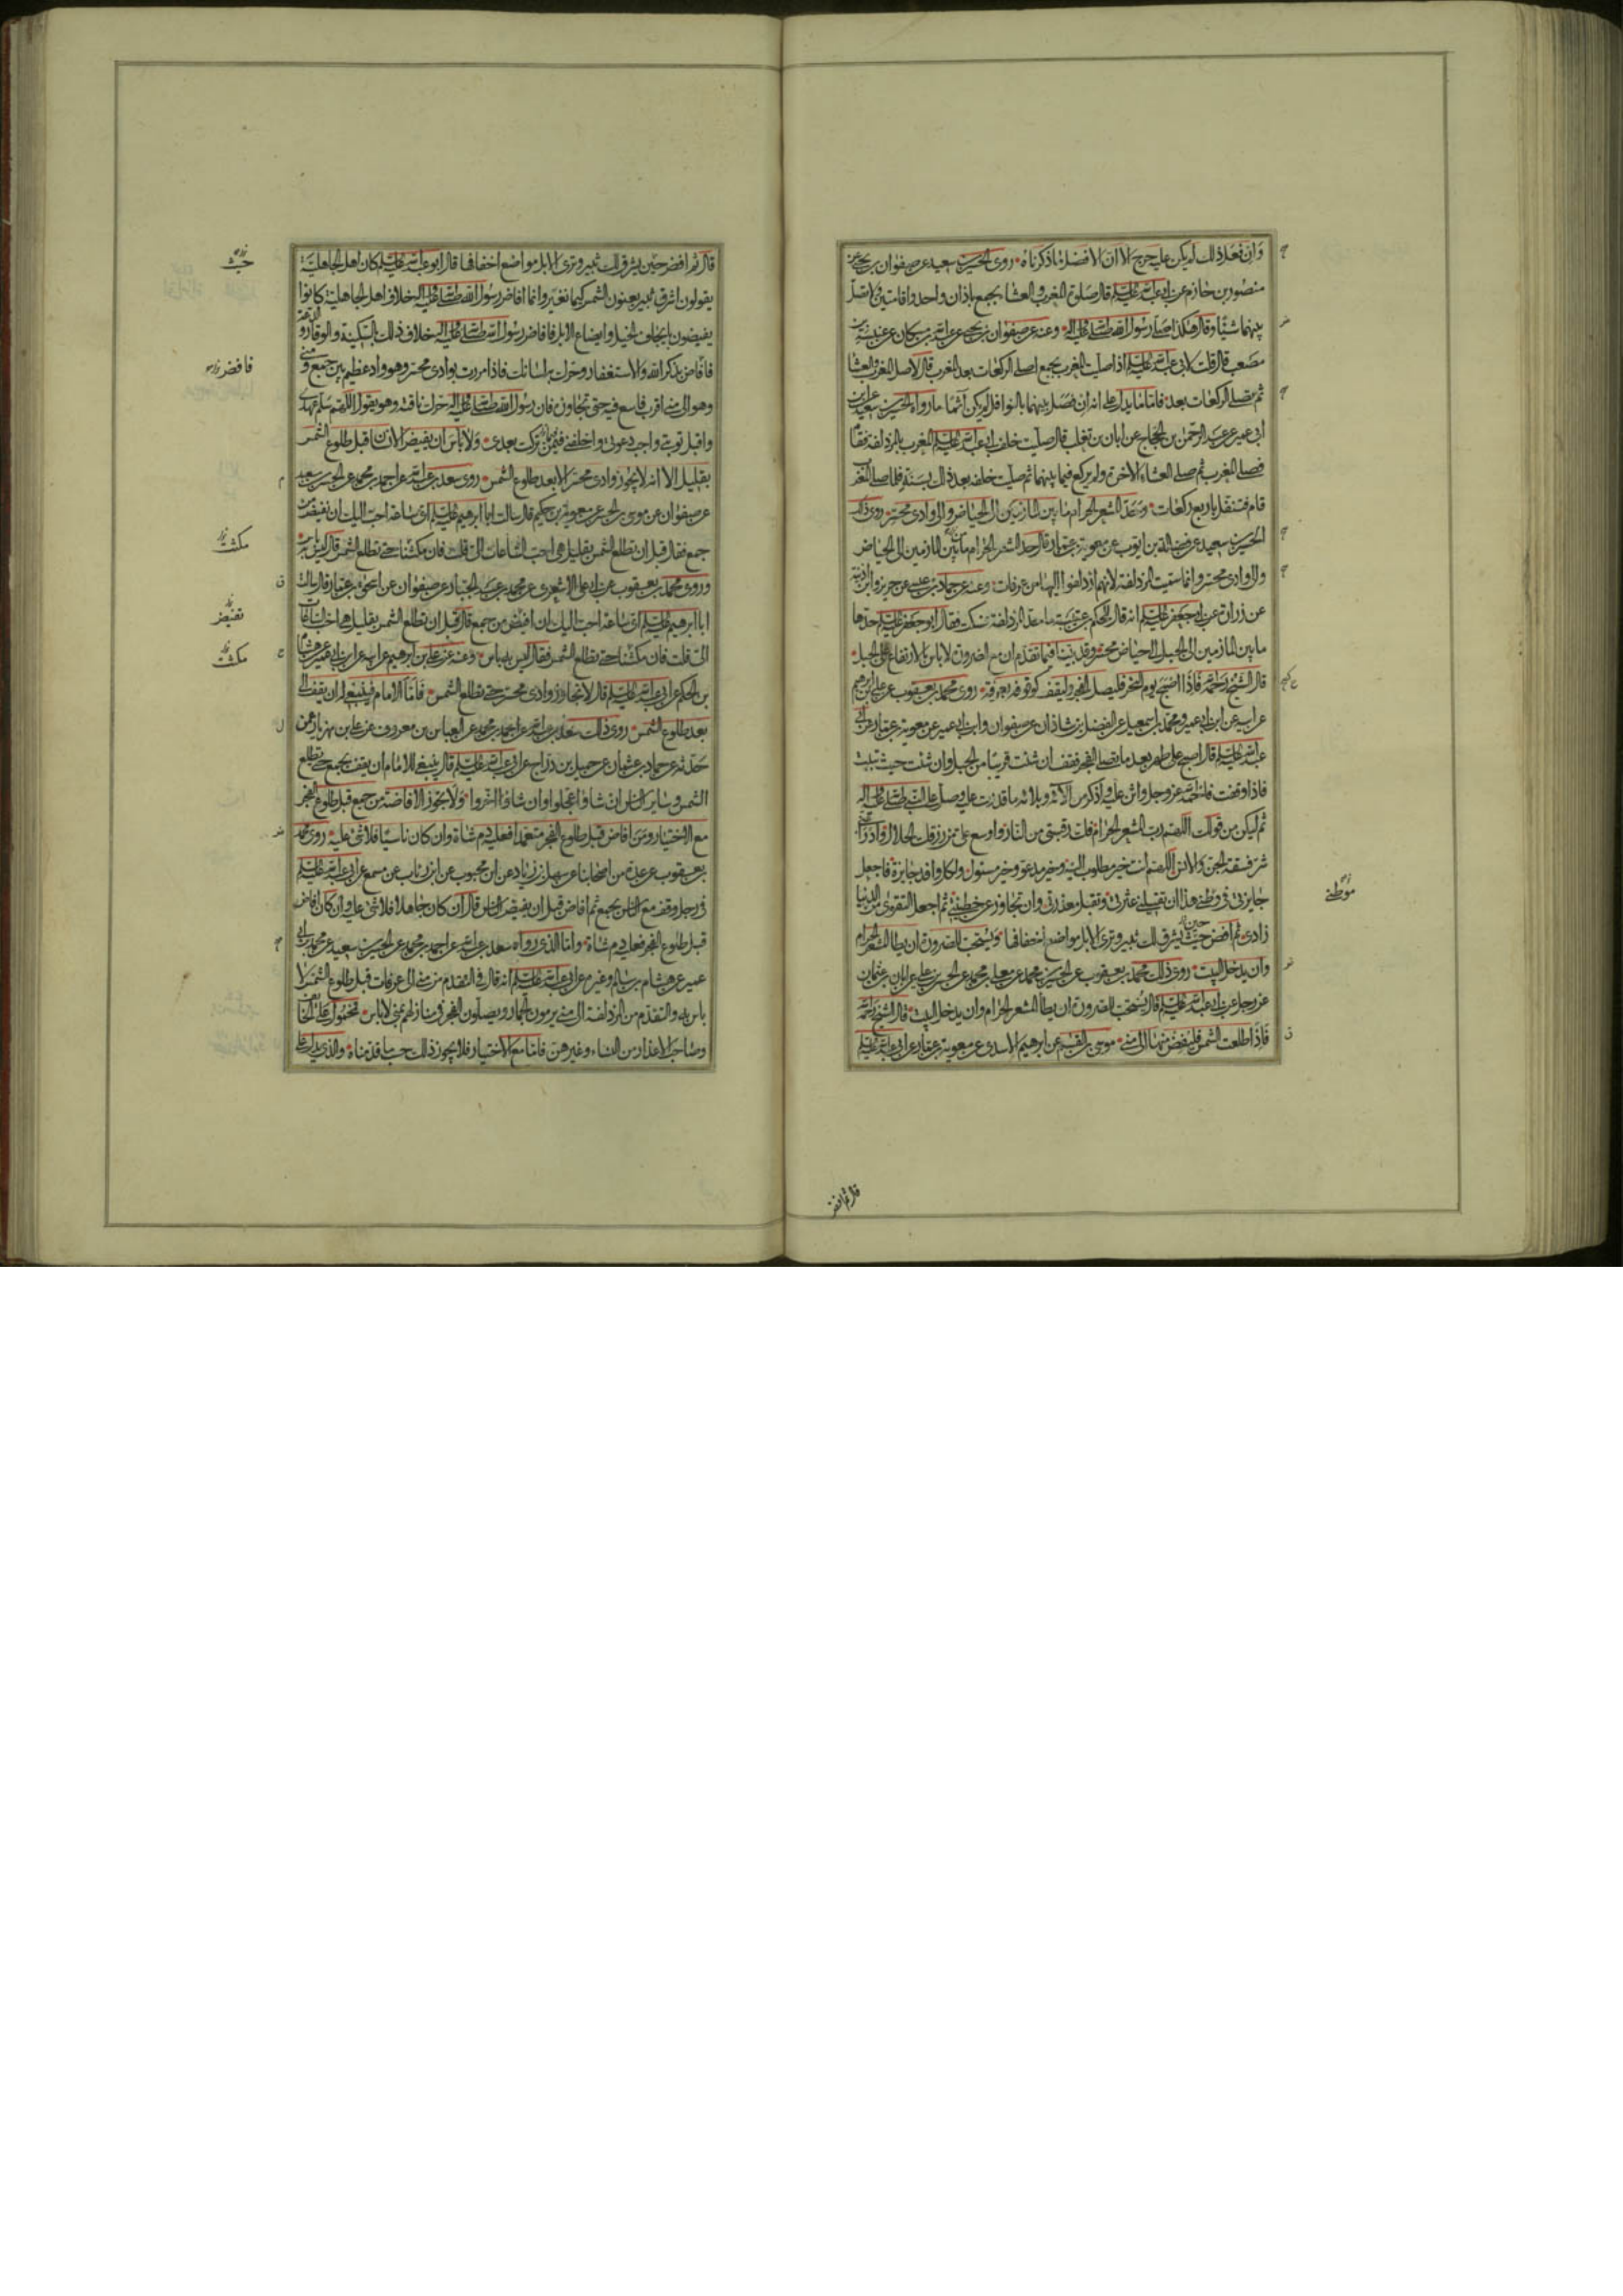 وان فعل ذلك لم يكن عليه حرج الا ان الافضل ما ذكرناه روى الحسين بن سعيد عن صفوان بن يحيى عن
منصور بن حازم عن ابي عبد الله عليه السلم قال صلوة المغرب والعشا بجمع باذان واحد واقامتين ولا تصل
بينهما شيئا وقال هكذا صلى رسول الله صلى الله عليه واله وعنه عن صفوان بن يحيى عن عبد الله بن مسكان عن عنبسة بن
مصعب قال قلت لابي عبد الله عليه السلم اذا صليت المغرب بجمع اصلي الركعات بعد المغرب قال لا صل المغرب والعشا
ثم تصلي الركعات بعد فاما ما يدل على انه ان فصل بينهما بالنوافل لم يكن آثما ما رواه الحسين بن سعيد عن ابن
ابي عمير عن عبد الرحمن بن الحجاج عن ابان بن تغلب قال صليت خلف ابي عبد الله عليه السلم المغرب بالمزدلفة فقام
فصلى المغرب ثم صلى العشاء الاخرة ولم يركع فيما بينهما ثم صليت خلفه بعد ذلك بسنة فلما صلى المغرب
قام فتنفل باربع ركعات وحد المشعر الحرام ما بين المازمين الى الحياض والى وادي محسر روى ذلك
الحسين بن سعيد عن فضالة بن ايوب عن معوية بن عمار قال حد المشعر الحرام ما بين المازمين الى الحياض
والى وادي محسر وانما سميت المزدلفة لانهم ازدلفوا اليها من عرفات وعنه عن حماد بن عيسى عن حريز وابن اذينة
عن زرارة عن ابي جعفر عليه السلم انه قال للحكم بن عتيبة ما حد المزدلفة فسكت فقال ابو جعفر عليه السلم حدها
ما بين المازمين الى الجبل الى حياض محسر وقد بينا فيما تقدم ان مع الضرورة لا باس بالارتفاع الى الجبل
قال الشيخ رحمه الله فاذا اصبح يوم النحر فليصل الفجر وليقف كوقوفه بعرفة روى محمد بن يعقوب عن علي بن ابرهيم
عن ابيه عن ابن ابي عمير ومحمد بن اسمعيل عن الفضل بن شاذان عن صفوان وابن ابي عمير عن معوية بن عمار عن ابي
عبد الله عليه السلم قال اصبح على طهر بعد ما تصلي الفجر فقف ان شئت قريبا من الجبل وان شئت حيث تبيت
فاذا وقفت فاحمد الله عز وجل واثن عليه واذكر من آلائه وبلائه ما قدرت عليه وصل على النبي صلى الله عليه واله
ثم ليكن من قولك اللهم رب المشعر الحرام فك رقبتي من النار واوسع علي من رزقك الحلال وادرا عني
شر فسقة الجن والانس اللهم انت خير مطلوب اليه وخير مدعو وخير مسئول ولكل وافد جايزة فاجعل
جايزتي في موطني هذا ان تقيلني عثرتي وتقبل معذرتي وان تجاوز عن خطيئتي ثم اجعل التقوى من الدنيا
زادي ثم افض حيث يشرق لك ثبير وترى الابل مواضع اخفافها ويستحب للصرورة ان يطا المشعر الحرام
وان يدخل البيت روى ذلك محمد بن يعقوب عن الحسين بن محمد عن معلى بن محمد عن الحسن بن علي عن ابان بن عثمان
عن رجل عن ابي عبد الله عليه السلم قال يستحب للصرورة ان يطا المشعر الحرام وان يدخل البيت قال الشيخ رحمه الله
فاذا طلعت الشمس فليفض منها الى منى موسى بن القسم عن ابرهيم الاسدي عن معوية بن عمار عن ابي عبد الله عليه السلم
موطني
قال ثم افض
قال ثم افض حين يشرق لك ثبير وترى الابل مواضع اخفافها قال ابو عبد الله عليه السلم كان اهل الجاهلية
يقولون اشرق ثبير يعنون الشمس كيما نغير وانما افاض رسول الله صلى الله عليه واله خلاف اهل الجاهلية كانوا
يفيضون بايجاف الخيل وايضاع الابل فافاض رسول الله صلى الله عليه واله خلاف ذلك بالسكينة والوقار والدعة
فافاض بذكر الله والاستغفار وحركة لسانك فاذا مررت بوادي محسر وهو واد عظيم بين جمع ومنى
وهو الى منى اقرب فاسع فيه حتى تجاوزه فان رسول الله صلى الله عليه واله حرك ناقته وهو يقول اللهم سلم عهدي
واقبل توبتي واجب دعوتي واخلفني فيمن تركت بعدي ولا باس ان يفيض الانسان قبل طلوع الشمس
بقليل الا انه لا يجوز وادي محسر الا بعد طلوع الشمس روى سعد بن عبد الله عن احمد بن محمد عن الحسين بن سعيد
عن صفوان عن موسى بن الحسن عن معوية بن حكيم قال سالت ابا ابرهيم عليه السلم اي ساعة احب اليك ان نفيض من
جمع فقال قبل ان تطلع الشمس بقليل هي احب الساعات الي قلت فان مكثنا حتى تطلع الشمس قال ليس به باس
وروى محمد بن يعقوب عن ابي علي الاشعري عن محمد بن عبد الجبار عن صفوان عن اسحق بن عمار قال سالت
ابا ابرهيم عليه السلم اي ساعة احب اليك ان افيض من جمع قال قبل ان تطلع الشمس بقليل هي احب الساعات
الي قلت فان مكثنا حتى تطلع الشمس فقال ليس به باس وعنه عن علي بن ابرهيم عن ابيه عن ابن ابي عمير عن هشام
بن الحكم عن ابي عبد الله عليه السلم قال لا تجاوز وادي محسر حتى تطلع الشمس فاما الامام فينبغي له ان يقف الى
بعد طلوع الشمس روى ذلك سعد بن عبد الله عن احمد بن محمد عن العباس بن معروف عن علي بن مهزيار عمن
حدثه عن حماد بن عثمان عن جميل بن دراج عن ابي عبد الله عليه السلم قال ينبغي للامام ان يقف بجمع حتى تطلع
الشمس وساير الناس ان شاؤا عجلوا وان شاؤا اخروا ولا يجوز الافاضة من جمع قبل طلوع الفجر
مع الاختيار ومن افاض قبل طلوع الفجر متعمدا فعليه دم شاة وان كان ناسيا فلا شئ عليه روى محمد
بن يعقوب عن عدة من اصحابنا عن سهل بن زياد عن ابن محبوب عن ابن رئاب عن مسمع عن ابي عبد الله عليه السلم
في رجل وقف مع الناس بجمع ثم افاض قبل ان يفيض الناس قال ان كان جاهلا فلا شئ عليه وان كان افاض
قبل طلوع الفجر فعليه دم شاة واما الذي رواه سعد بن عبد الله عن احمد بن محمد عن الحسين بن سعيد عن محمد بن ابي
عمير عن هشام بن سالم وغيره عن ابي عبد الله عليه السلم انه قال في التقدم من منى الى عرفات قبل طلوع الشمس لا
باس به والتقدم من المزدلفة الى منى يرمون الجمار ويصلون الفجر في منازلهم بمنى لا باس فمحمول على الخائف
وصاحب الاعذار من النساء وغيرهن فاما مع الاختيار فلا يجوز ذلك حسب ما قدمناه والذي يدل على
حيث
فافض
مكثت
نفيض
مكثت